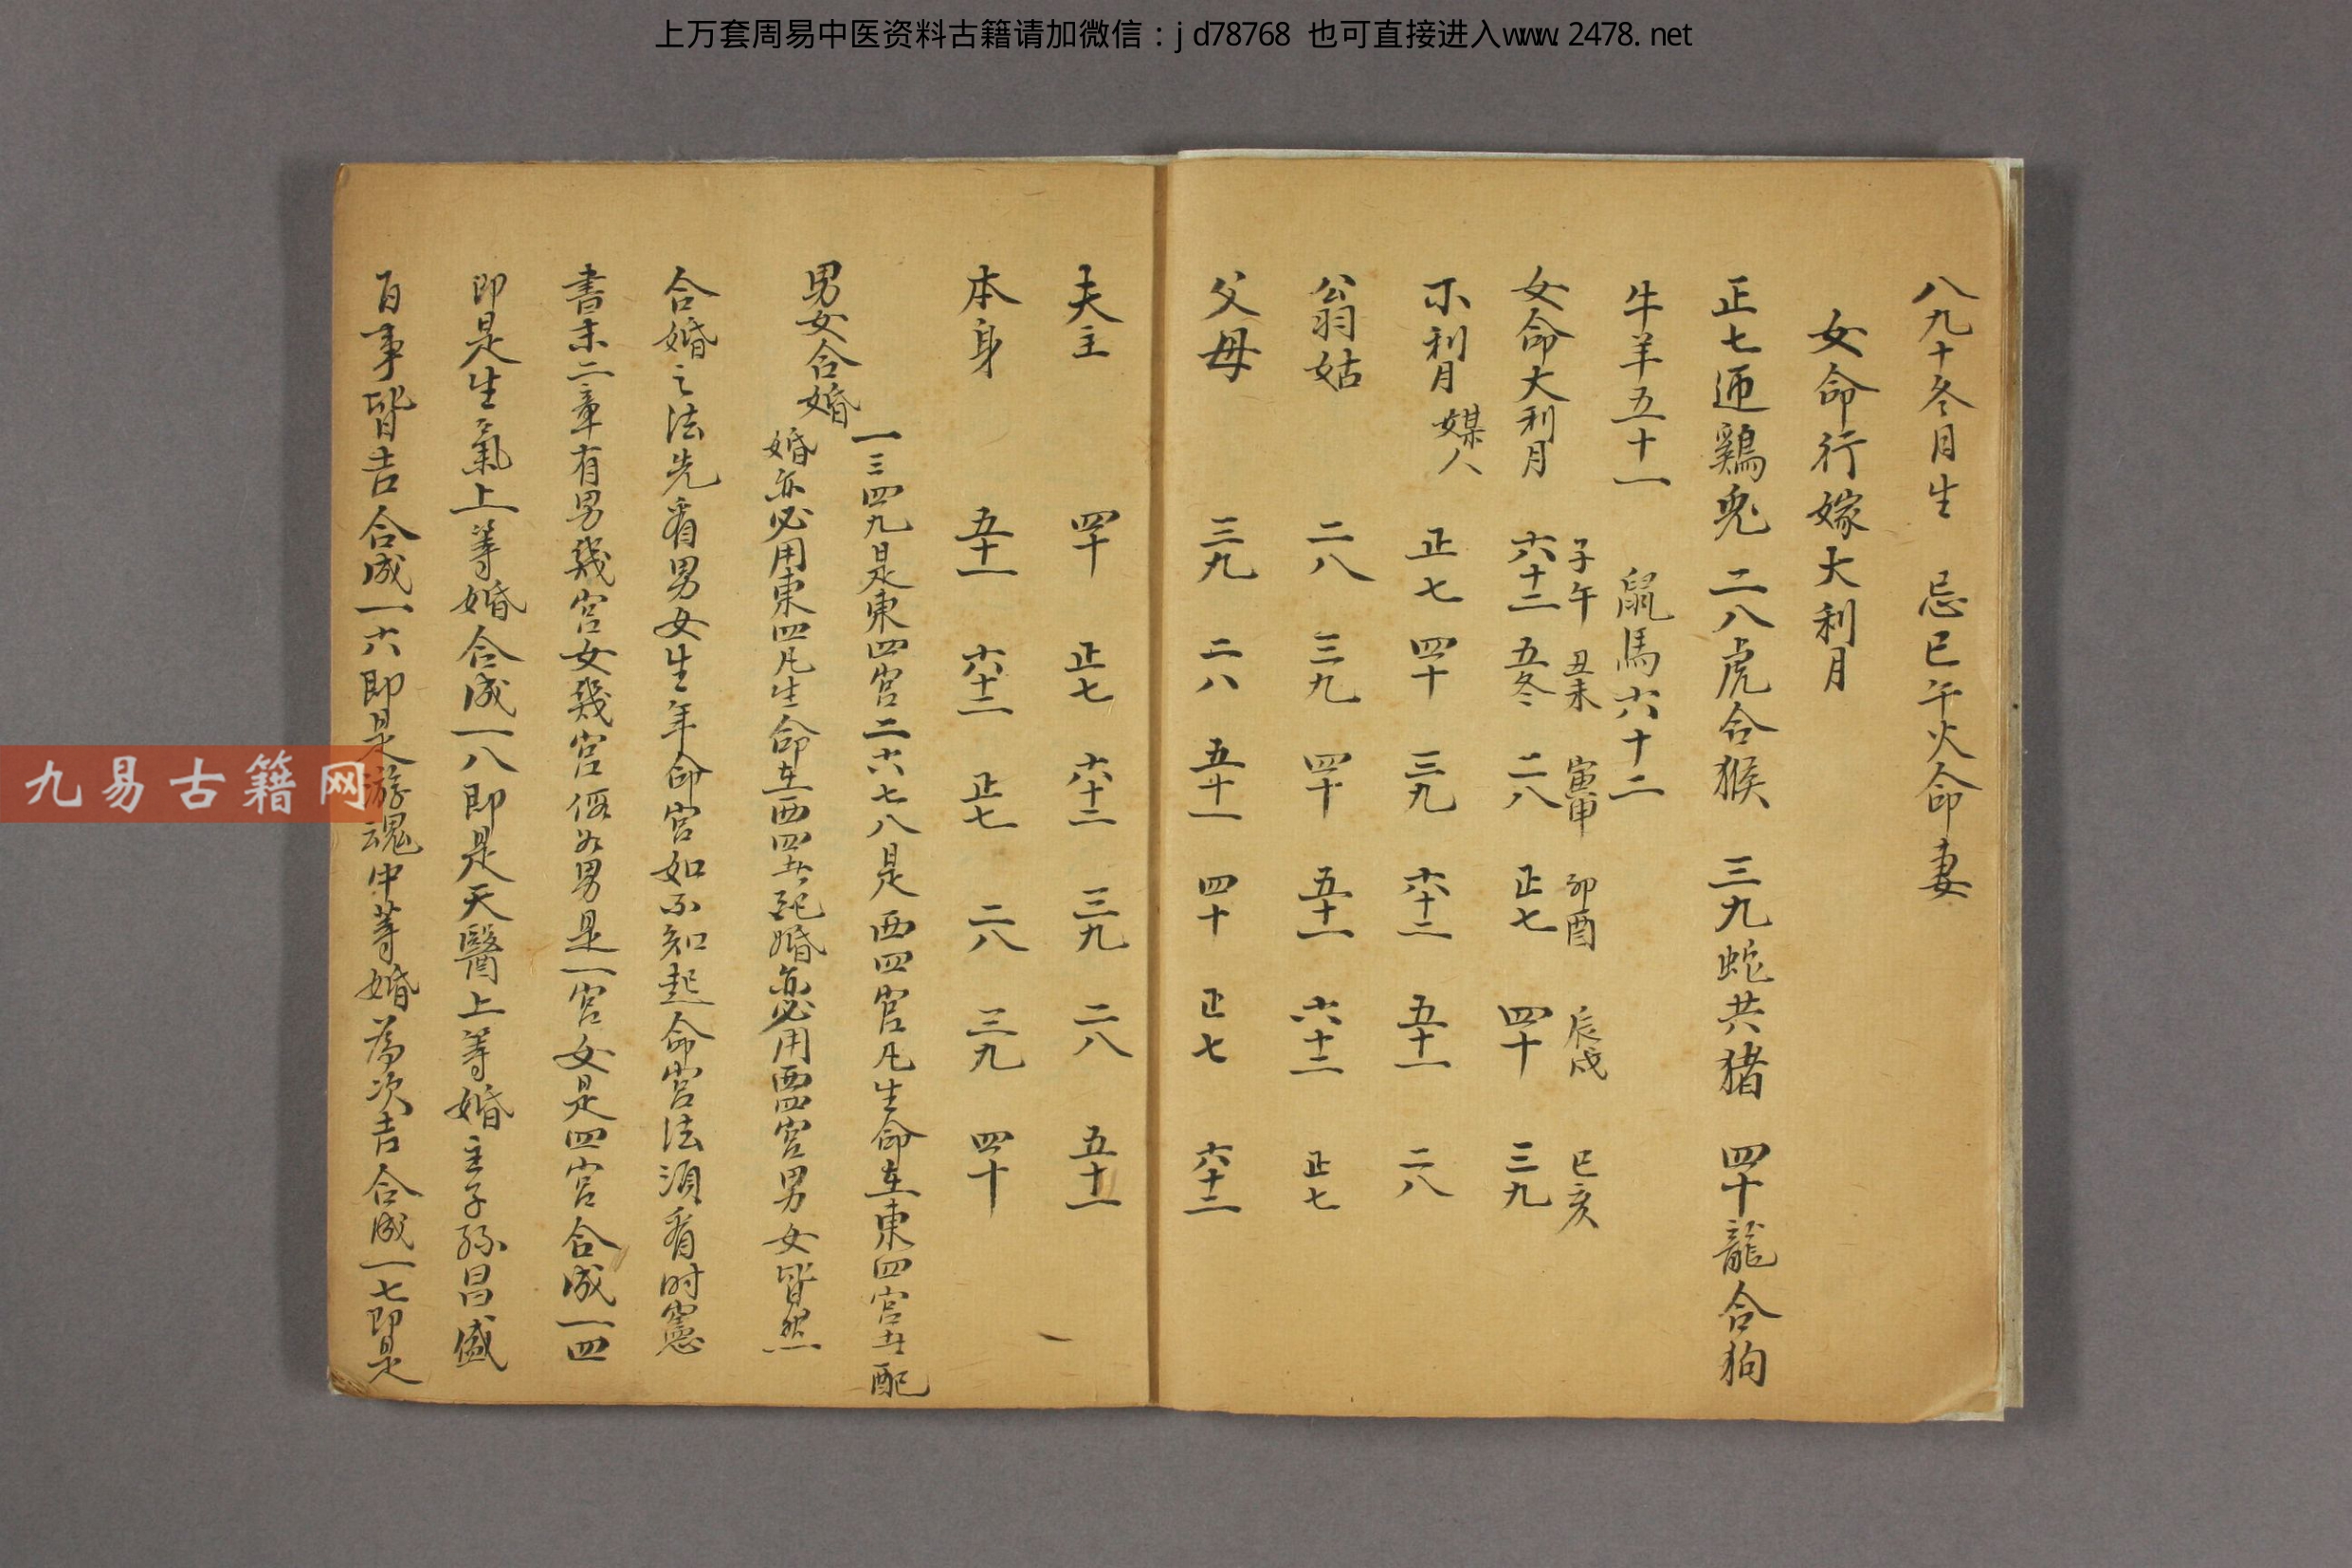 上万套周易中医资料古籍请加微信：jd78768 也可直接进入www.2478.net
八九十冬月生 忌巳午火命妻
女命行嫁大利月
正七迎鷄兎 二八虎合猴 三九蛇共猪 四十龍合狗
牛羊五十一 鼠馬六十二
子午 丑未 寅申 卯酉 辰戌 巳亥
女命大利月 六十二 五冬 二八 正七 四十 三九
不利月 媒人 正七 四十 三九 六十二 五十一 二八
翁姑 二八 三九 四十 五十一 六十二 正七
父母 三九 二八 五十一 四十 正七 六十二
夫主 四十 正七 六十二 三九 二八 五十一
本身 五十一 六十二 正七 二八 三九 四十
男女合婚
一三四九是東四宮二六七八是西四宮凡生命在東四宮共配
婚亦必用東四凡生命在西四共配婚亦必用西四宮男女皆然
合婚之法先看男女生年命宮如不知起命宮法須看时憲
書末二章有男幾宮女幾宮假如男是一宮女是四宮合成一四
即是生氣上等婚合成一八即是天醫上等婚主子孫昌盛
百事皆吉合成一六即是游魂中等婚為次吉合成一七即是
九易古籍网